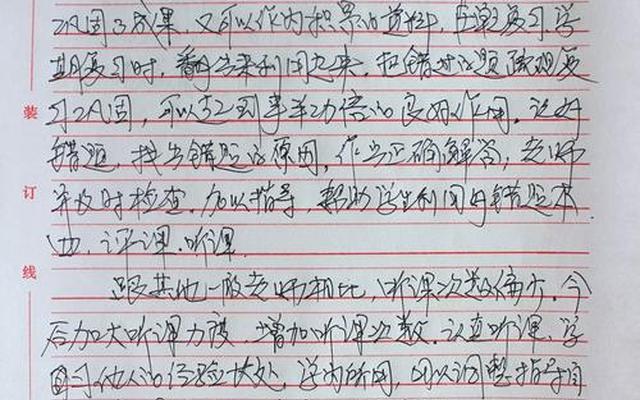 巩固了成果,又可以作为积累的资料,在单元复习、学
期复习时,翻出来利用起来,把错过的题再现复
习巩固,可以起到事半功倍的良好作用。让好
错题,找出错题的原因,作出正确解答,老师
并及时检查,加以指导,帮助学生利用好错题本
四、评课、听课
跟其他一般老师相比,听课次数偏少。今
后加大听课力度,增加听课次数。认真听课,学
习他人的经验长处,学为所用,可以调整指导
装
订
线